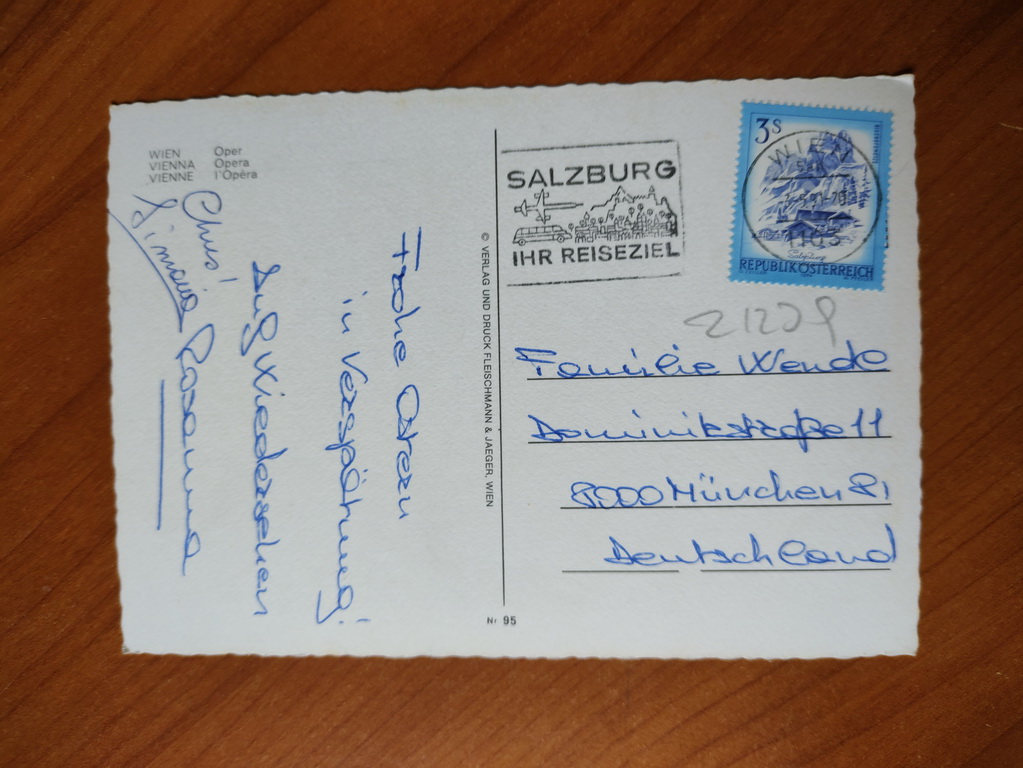 WIEN Oper
VIENNA Opera
VIENNE l'Opéra
Frohe Ostern
in Verspätung!
Auf Wiedersehen
Rosanna
© VERLAG UND DRUCK FLEISCHMANN & JAEGER, WIEN
Nr 95
SALZBURG
IHR REISEZIEL
3S
WIEN
1103
REPUBLIK ÖSTERREICH
Familie Wende
Dominikstraße 11
8000 München 81
Deutschland